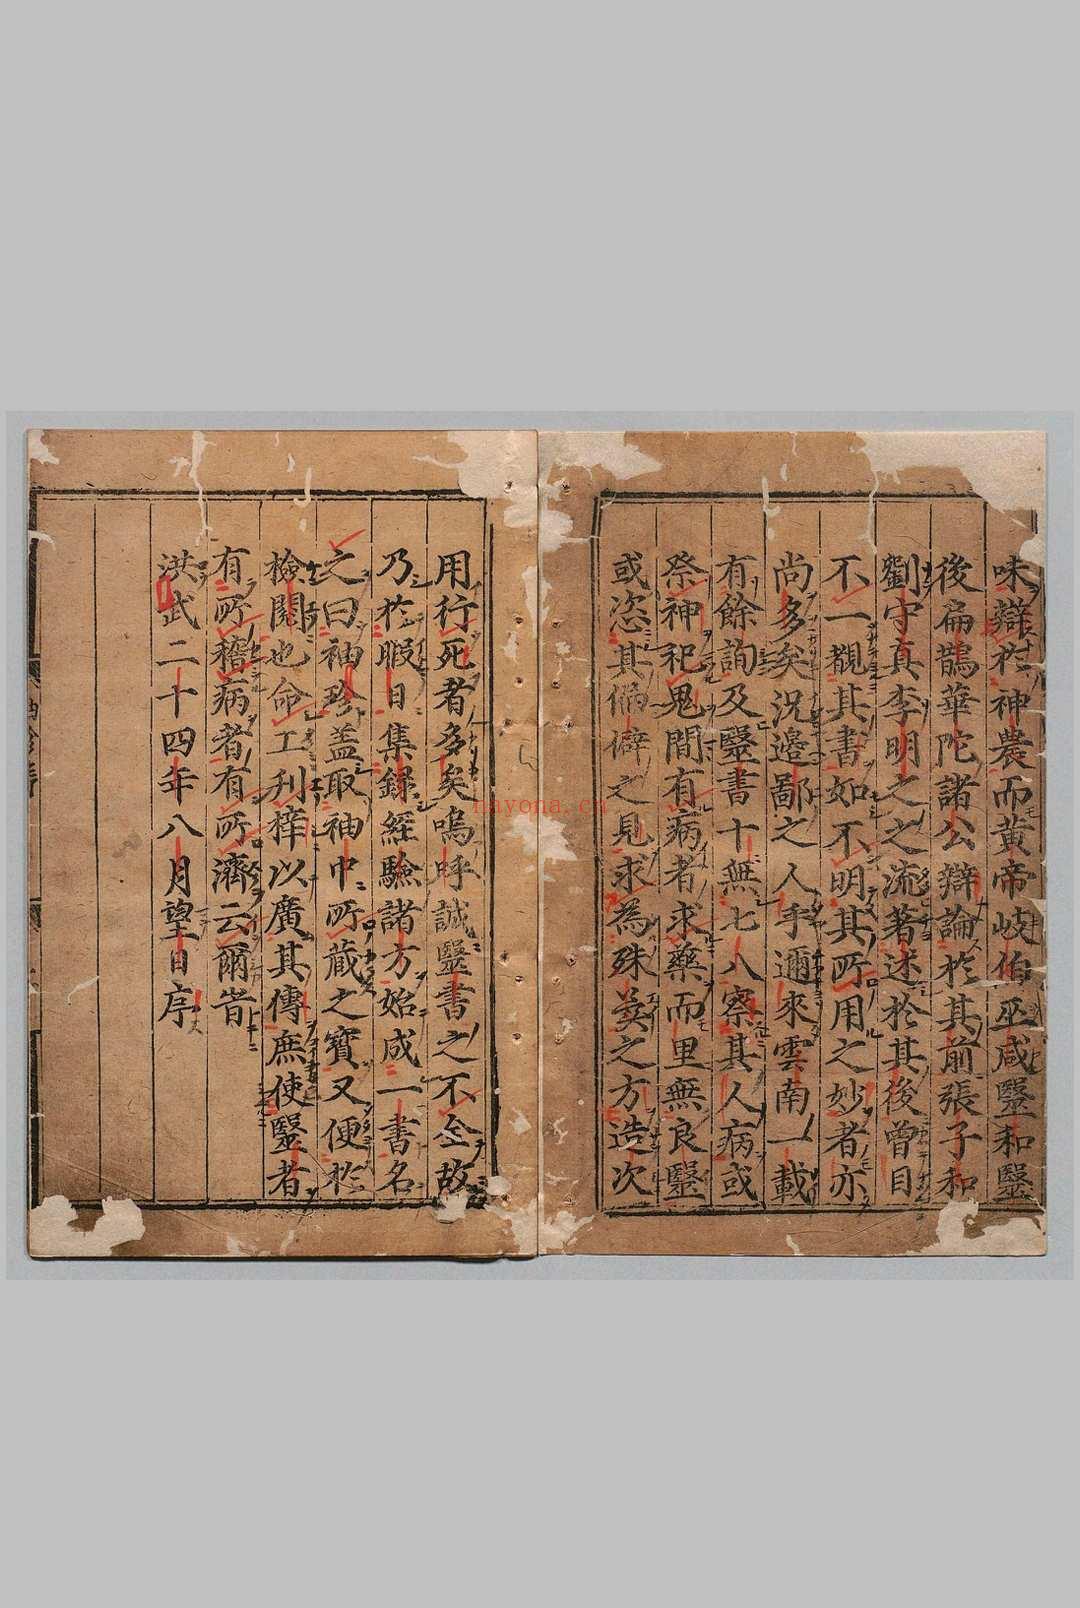 味辯於神農而黃帝岐伯巫咸毉和毉
後扁鵲華陀諸公辯論於其前張子和
劉守真李明之之流著述於其後曾目
不一覩其書如不明其所用之妙者亦
尚多矣況邊鄙之人乎邇來雲南一載
有餘詢及毉書十無七八察其人病或
祭神祀鬼間有病者求藥而里無良毉
或恣其偏僻之見求為殊異之方造次
用行死者多矣嗚呼誠毉書之不全故
乃於暇日集錄經驗諸方始成一書名
之曰袖珍蓋取袖中所藏之寶又便於
檢閱也命工刋梓以廣其傳庶使毉者
有所稽病者有所濟云爾旹
洪武二十四年八月望日序
nayona.cn